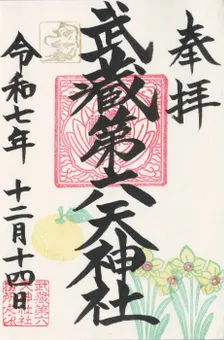 奉拝
武蔵第六天神社
令和七年 十二月十四日
武蔵第六
天神社